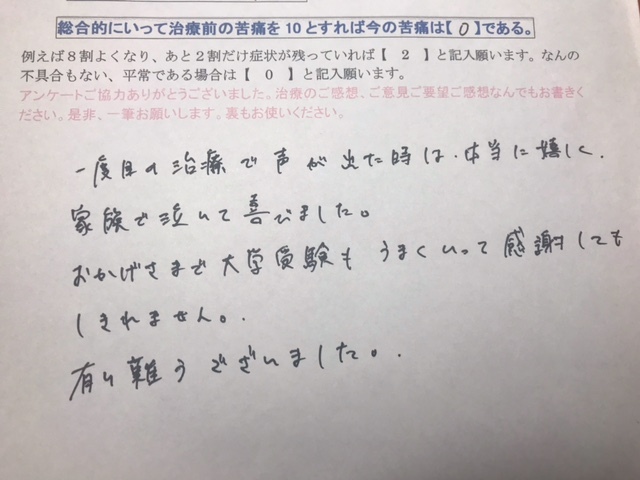 総合的にいって治療前の苦痛を10とすれば今の苦痛は【 0 】である。
例えば８割よくなり、あと２割だけ症状が残っていれば【　２　】と記入願います。なんの
不具合もない、平常である場合は【　０　】と記入願います。
アンケートご協力ありがとうございました。治療のご感想、ご意見ご要望ご感想なんでもお書きく
ださい。是非、一筆お願いします。裏もお使いください。
一度目の治療で声が出た時は、本当に嬉しく、
家族で泣いて喜びました。
おかげさまで大学受験もうまくいって感謝しても
しきれません。
有り難うございました。